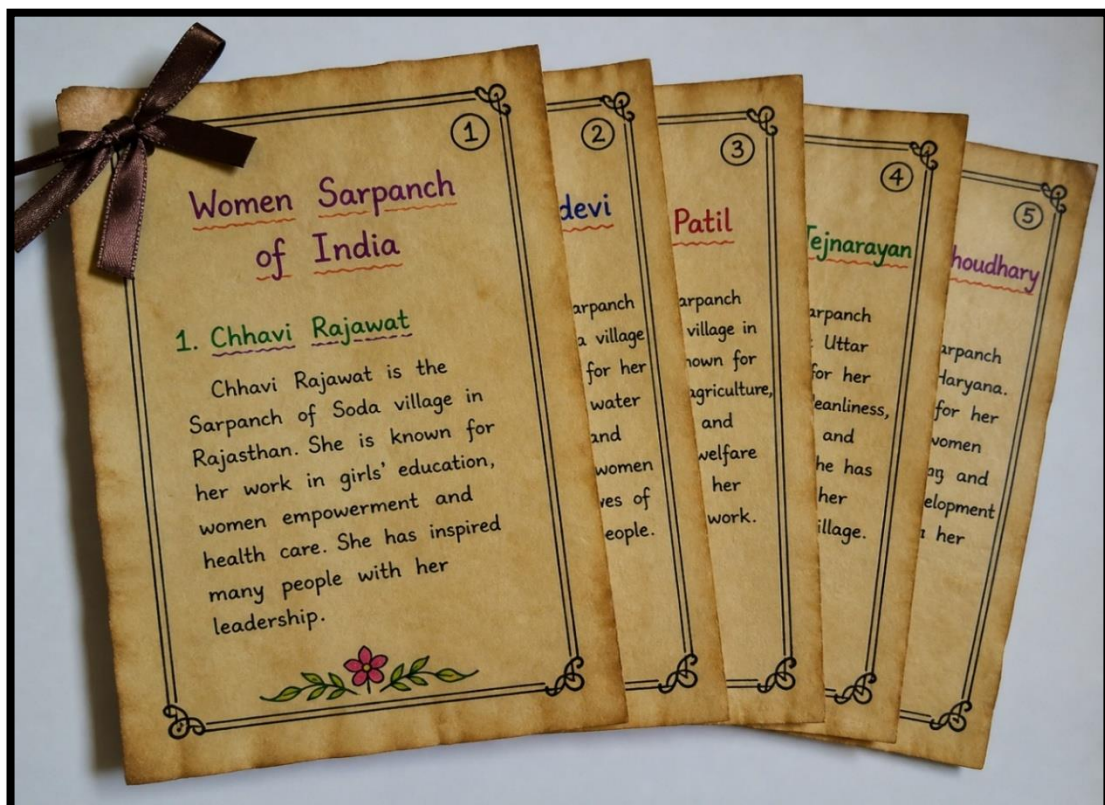 1
Women Sarpanch
of India
1. Chhavi Rajawat
Chhavi Rajawat is the
Sarpanch of Soda village in
Rajasthan. She is known for
her work in girls' education,
women empowerment and
health care. She has inspired
many people with her
leadership.
2
devi
arpanch
a village
for her
water
and
women
ves of
eople.
3
Patil
arpanch
village in
nown for
agriculture,
and
welfare
her
work.
4
Tejnarayan
arpanch
Uttar
for her
leanliness,
and
he has
her
illage.
5
houdhary
arpanch
Haryana.
for her
women
and
elopment
her